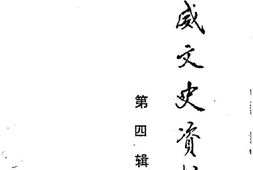 威文史资
第四辑